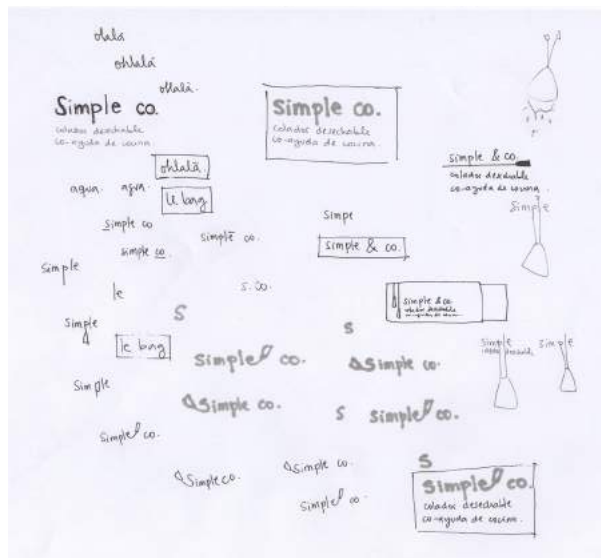 ohlalá
ohlalá
ohlalá.
Simple co.
colador desechable
co-ayuda de cocina.
Simple co.
colador desechable
co-ayuda de cocina.
ohlalá.
simple & co.
colador desechable
co-ayuda de cocina.
agua.
agua.
le bag
Simple
simple co
simple co.
Simpe
simple co.
simple & co.
Simple
le
s. co.
simple & co.
Simple
S
S
le bag
Simple co.
Simple co.
Simple
Simple
Simple
Simple co.
S
Simple co.
Simple co.
Simple co.
Simple co.
Simple co.
S
Simple co.
colador desechable
co-ayuda de cocina.